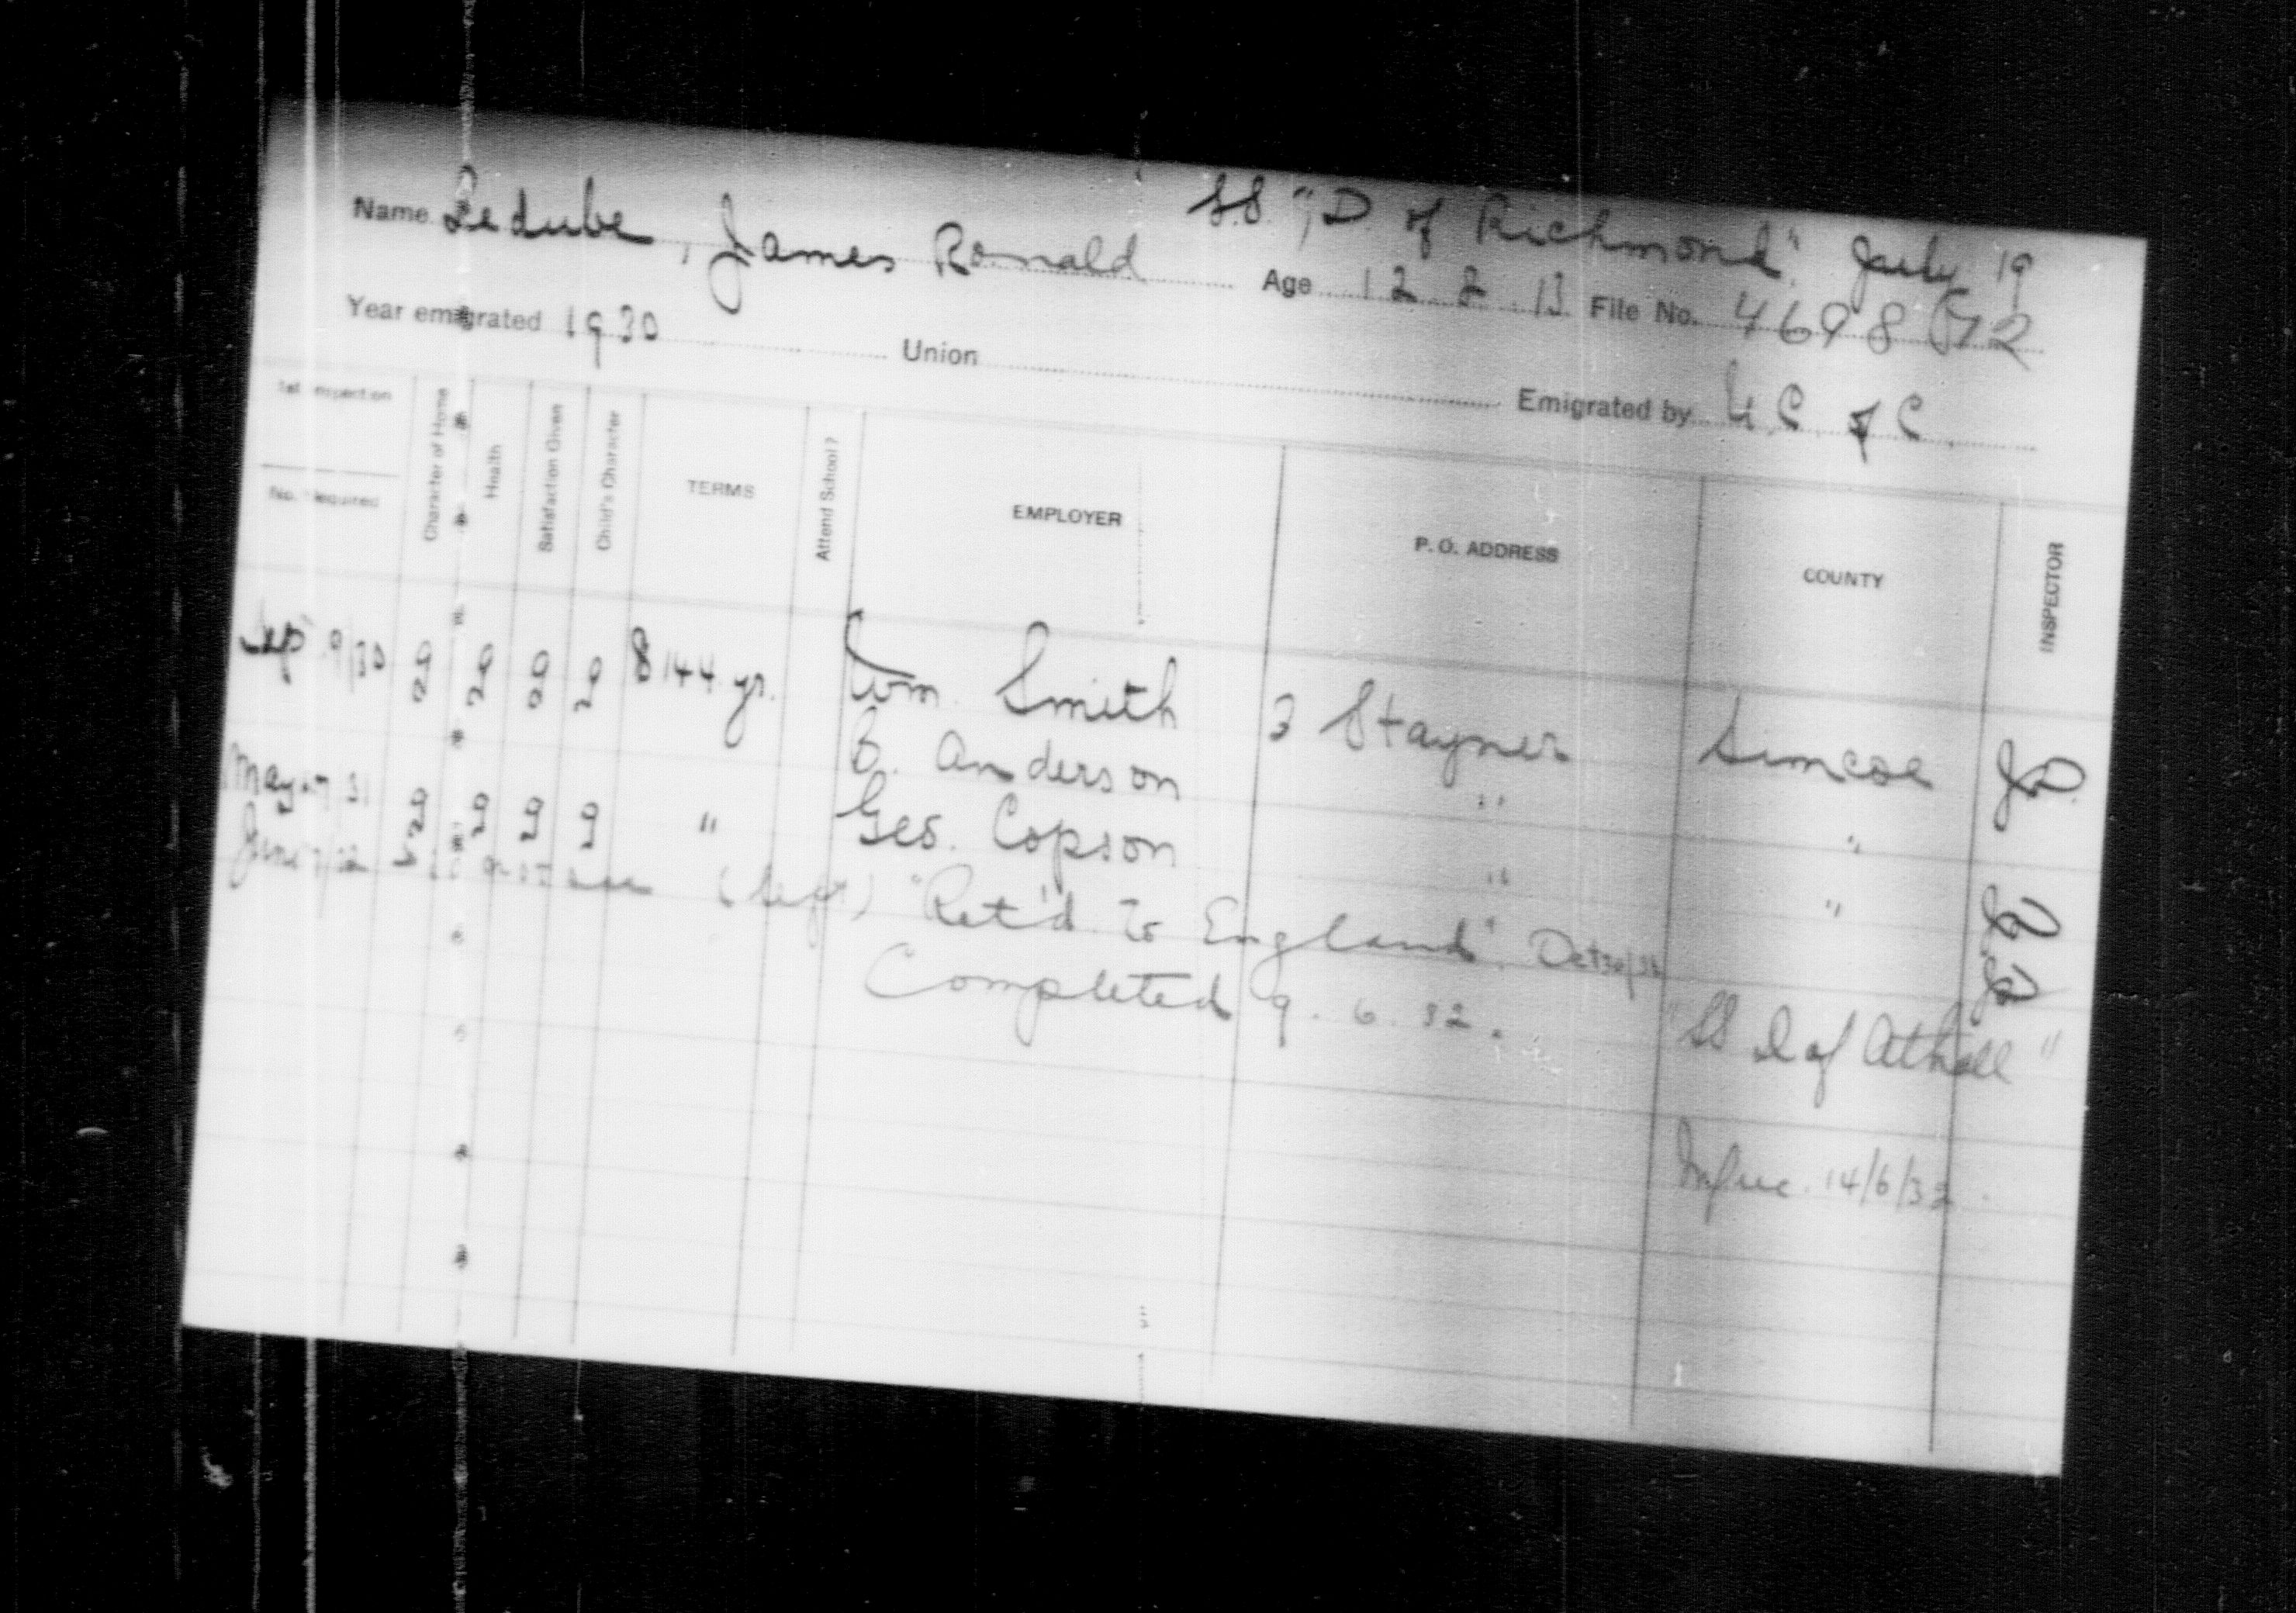 S.S. "D. of Richmond" July 19
Name Ledube, James Ronald Age 12.2.13 File No. 4698
Year emigrated 1930 Union Emigrated by U.C. of C.
1st Inspection
No. Required
Character of Home
Health
Satisfaction Given
Child's Character
TERMS
Attend School?
EMPLOYER
P. O. ADDRESS
COUNTY
INSPECTOR
Sep 9/30 144 yr. Wm. Smith 3 Stayner Simcoe
B. Anderson " "
May 31 " Geo. Copson " "
June (left) "Ret'd to England"
Completed 9.6.32. "SS D of Atholl"
14/6/32.